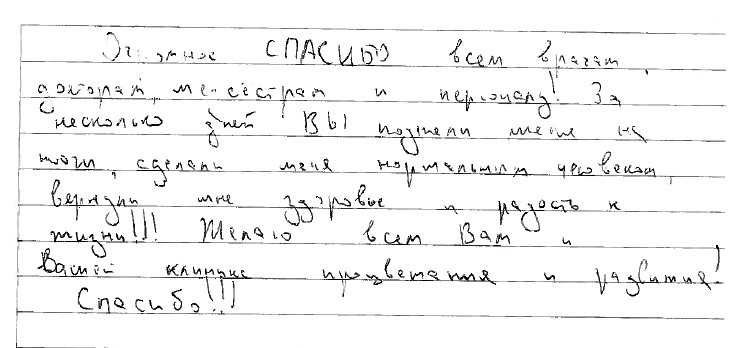 Огромное СПАСИБО всем врачам,
докторам, мед.сёстрам и персоналу! За
несколько дней ВЫ подняли меня на
ноги, сделали меня нормальным человеком,
вернули мне здоровье и радость к
жизни!!! Желаю всем Вам и
Вашей клинике процветания и развития!
Спасибо!!!